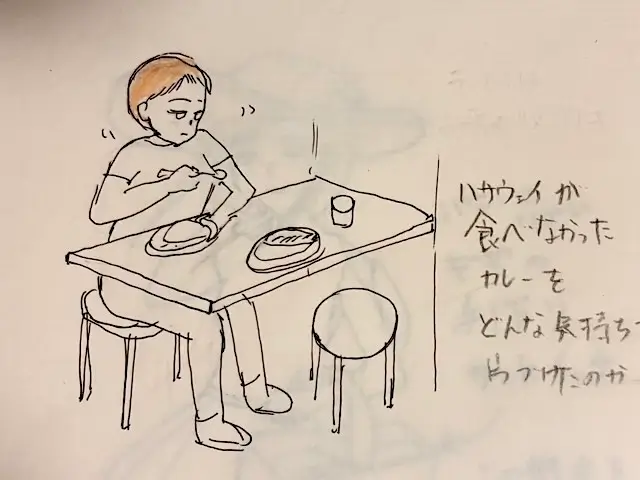 ハサウェイが
食べなかった
カレーを
どんな気持ちで
片づけたのか